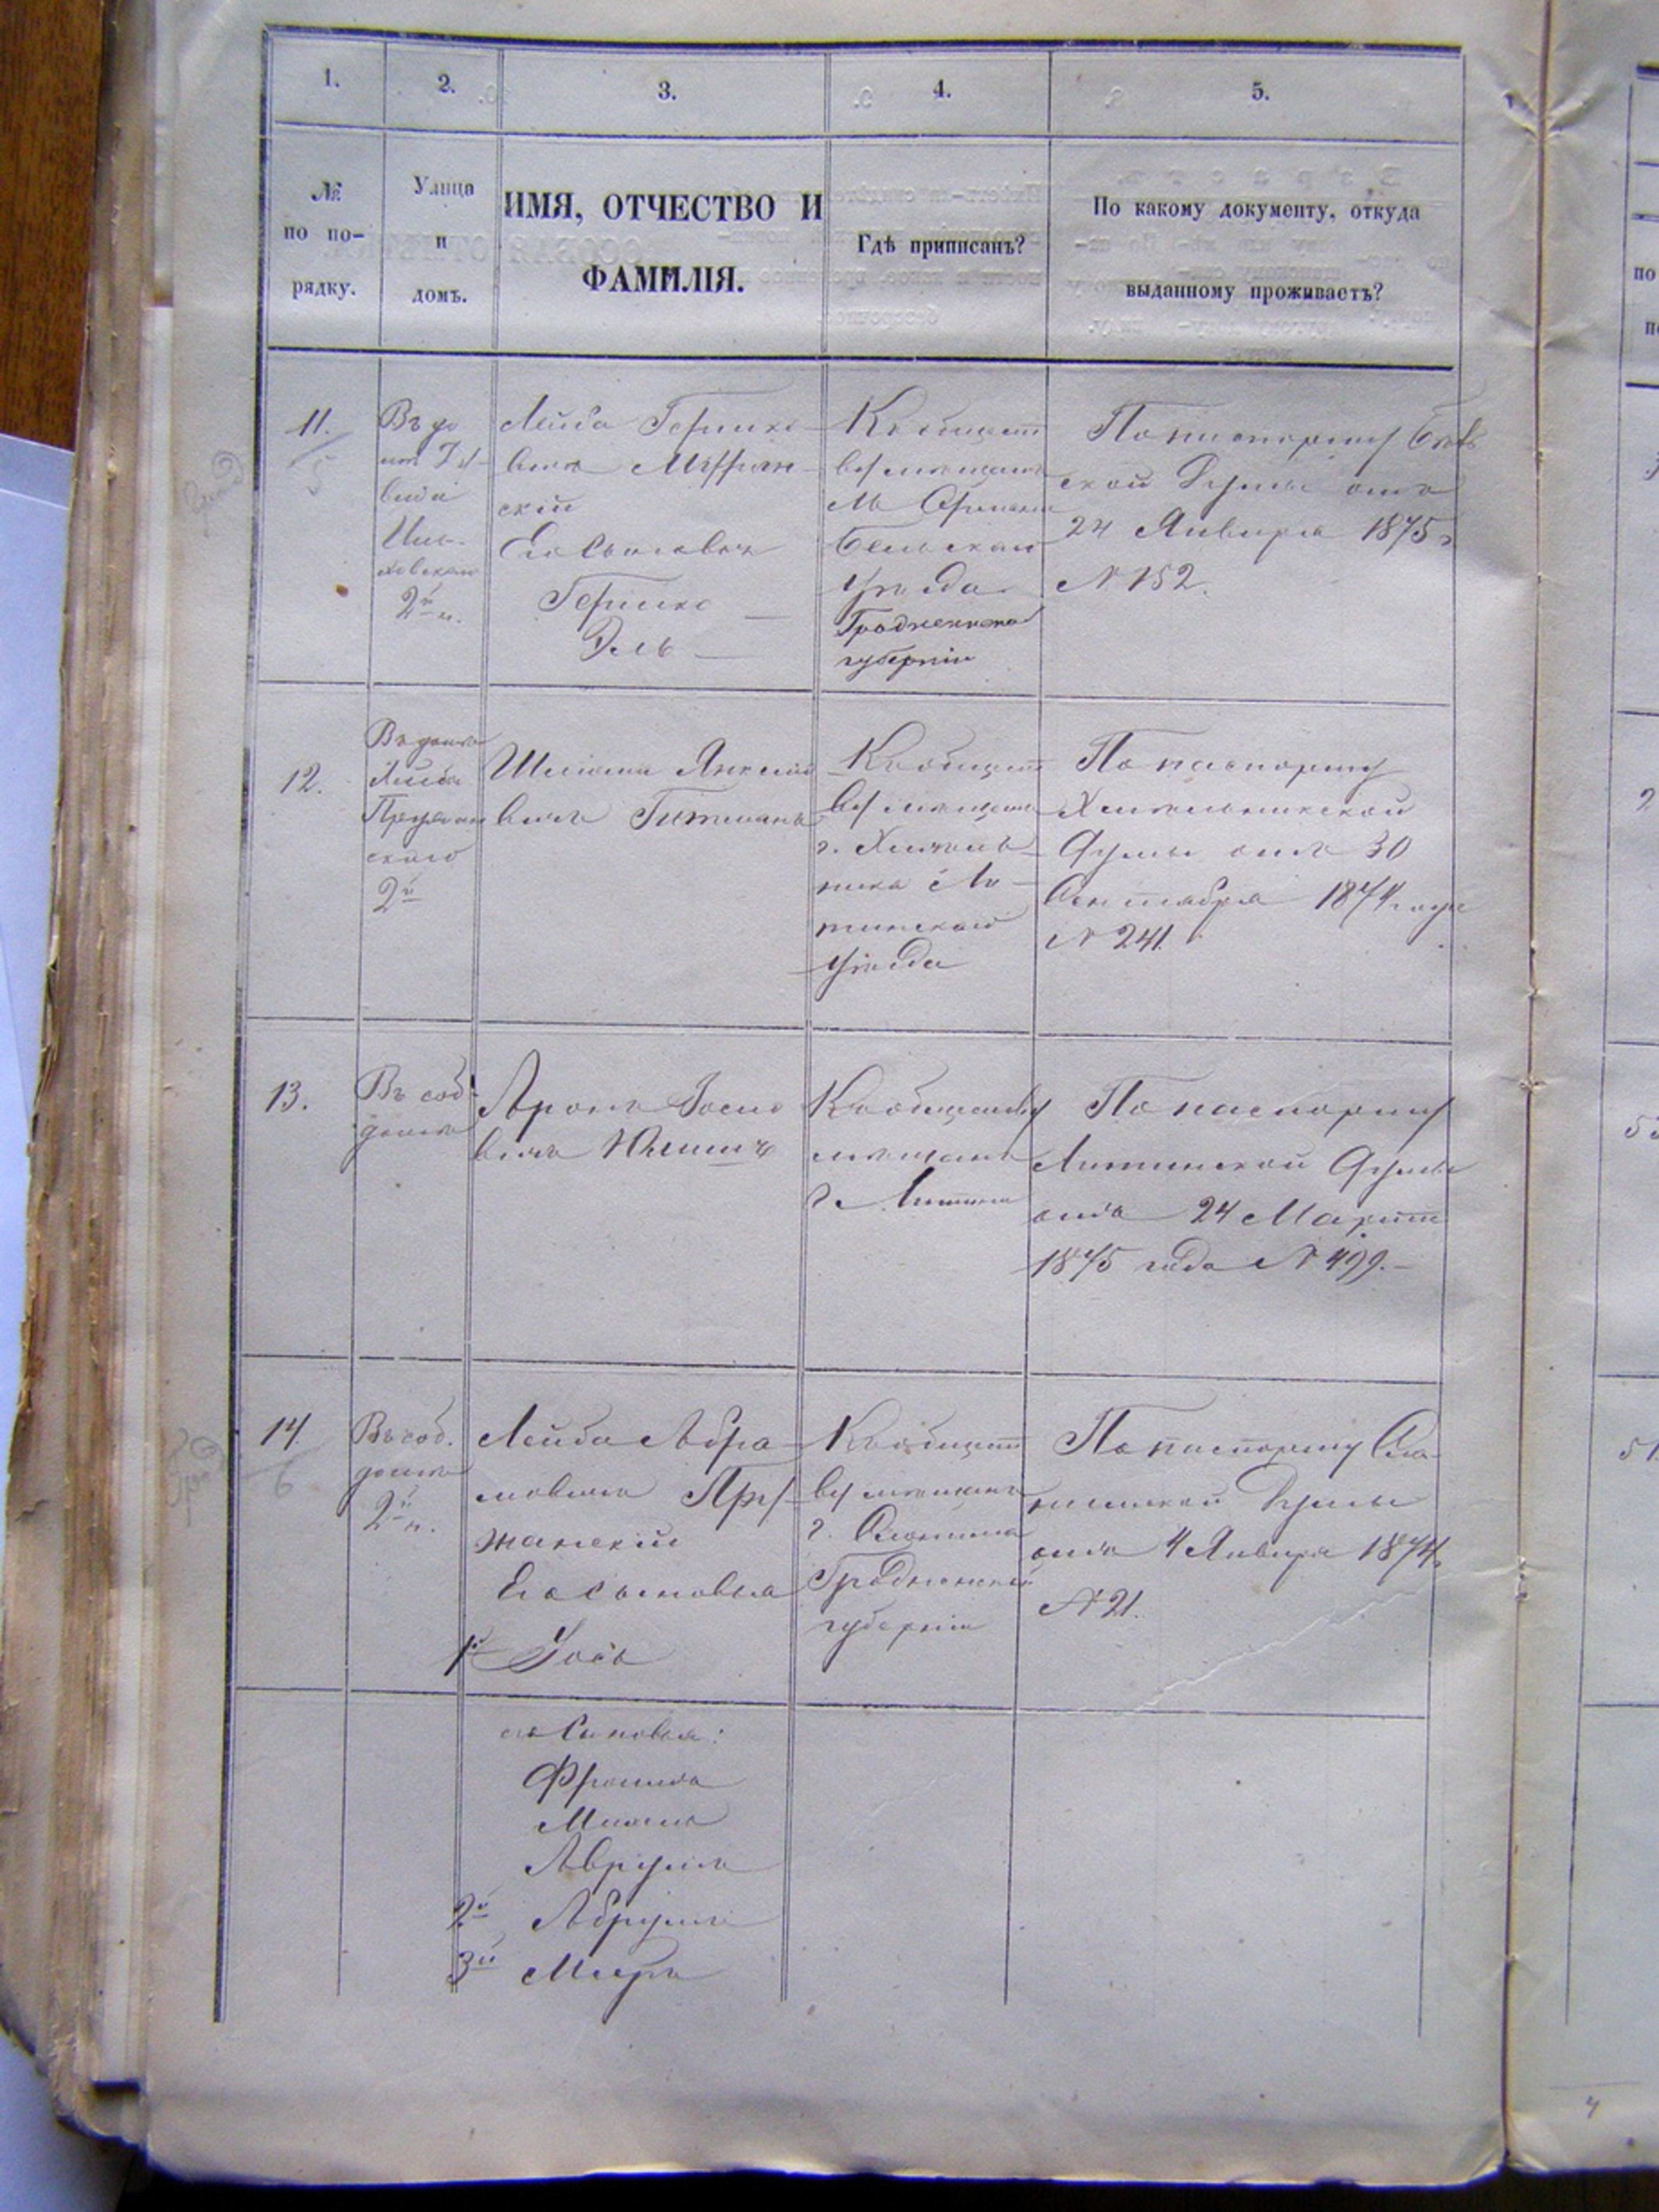 1.
2.
3.
4.
5.
№
по по-
рядку.
Улица
и
домъ.
ИМЯ, ОТЧЕСТВО И
ФАМИЛІЯ.
Гдѣ приписанъ?
По какому документу, откуда
выданному проживаетъ?
11.
5
Въ до
2й н.
Лейба Гершко
вичъ
скій
Его Сыновья
Гершко
Эль
Къ общест
ву мѣщанъ
Бельскаго
уѣзда
Гродненской
губерніи
По паспорту
ской Думы отъ
24 Января 1875 г
№ 152.
12.
Въ домѣ
Лейбы
Пружан
скаго
2й
Шлиома Янкелио
вичъ Гитманъ
Къ общест
ву мѣщанъ
г. Хмѣль
ника Ли
тинскаго
уѣзда
По паспорту
Хмѣльникской
Думы отъ 30
Сентября 1874 года
№ 241.
13.
Въ соб.
домѣ
Аронъ Іосио
вичъ
Къ обществу
мѣщанъ
г. Литина
По паспорту
Литинской Думы
отъ 24 Марта
1875 года № 499.
14.
6
Въ соб.
домѣ
2й н.
Лейба Абра
мовичъ Пру
жанскій
Его Сыновья
1й Іось
Къ общест
ву мѣщанъ
г. Слонима
Гродненской
губерніи
По паспорту Сло
нимской Думы
отъ 4 Января 1874 г
№ 21.
его Сыновья:
Фроимъ
Аврумъ
2й Абрумъ
3й Мееръ